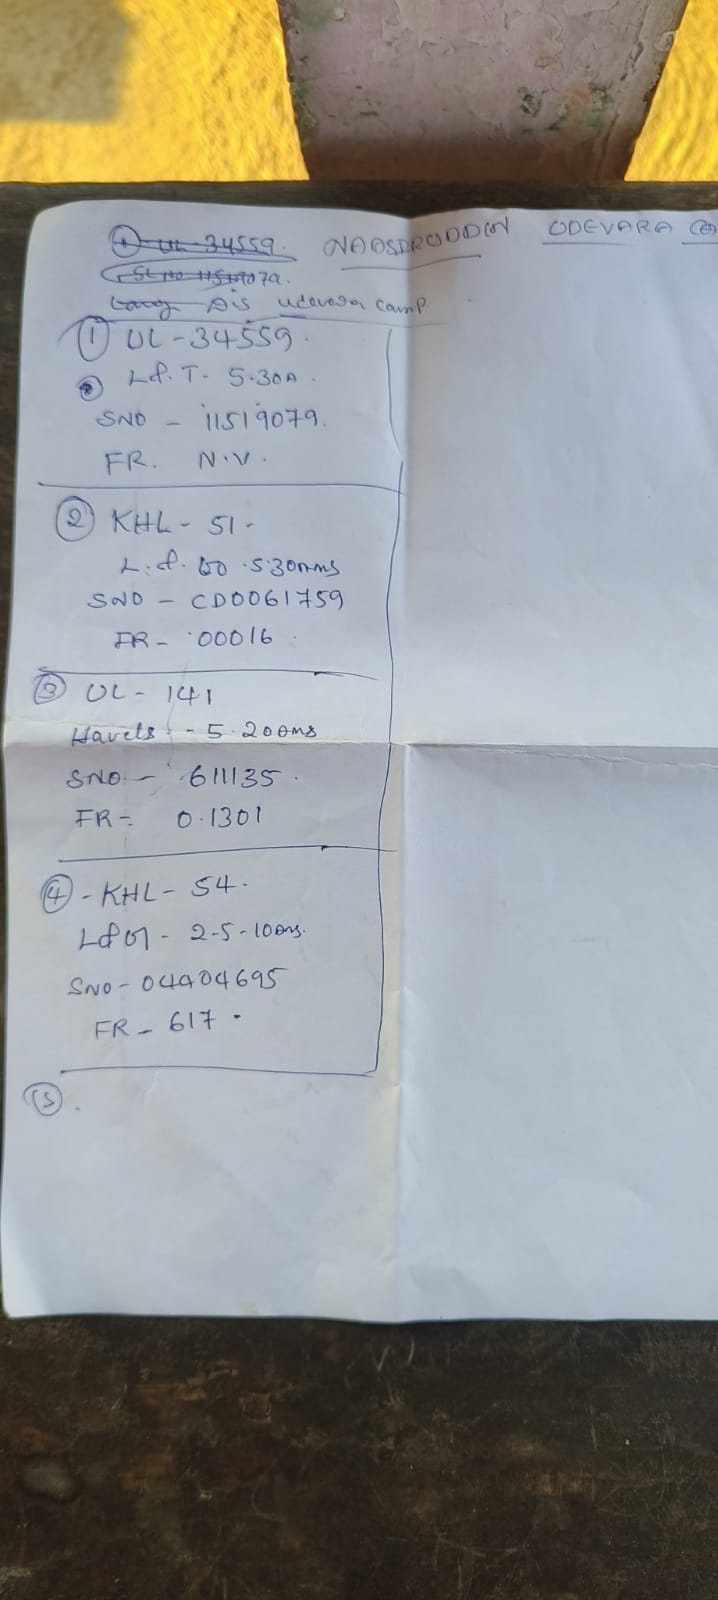 ① UL-34559. NAOSDRODDIN ODEVARA
SL NO 11519079.
Long Dis udevara camp
① UL-34559.
L&T- 5.30A.
SNO - 11519079.
FR. N.V.
② KHL- 51-
L.&. 5.30Ams
SNO - CD0061759
FR- 00016.
③ UL- 141
Havels. - 5.20ams
SNO - 611135.
FR- 0.1301
④ - KHL- 54.
L&T - 2-5-10Ams.
SNO-04904695
FR - 617.
⑤.